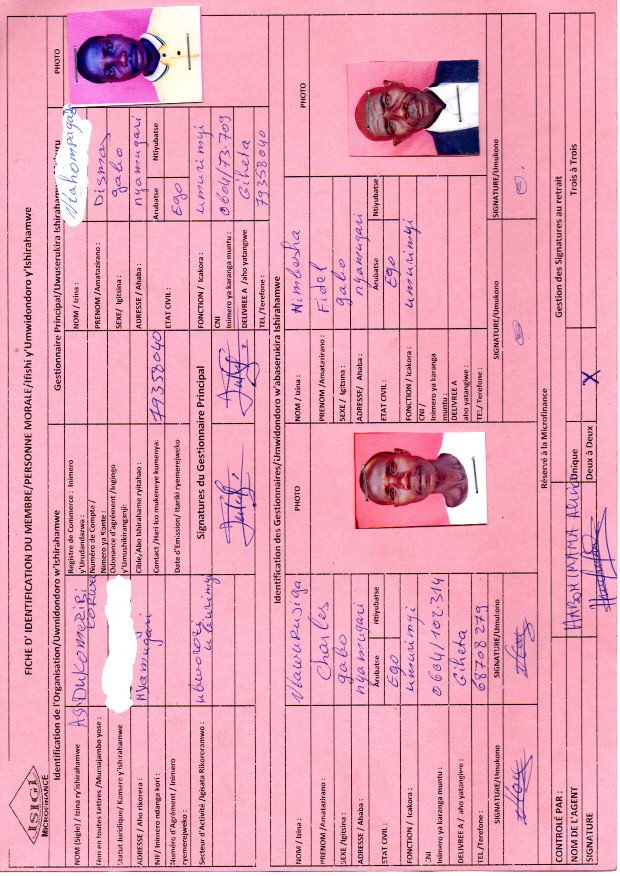 ISIGI
MICROFINANCE
FICHE D' IDENTIFICATION DU MEMBRE/PERSONNE MORALE/Ifishi y'Umwidondoro y'Ishirahamwe
Identification de l'Organisation/Uwmidondoro w'Ishirahamwe
NOM (Sigle) / Izina ry'ishirahamwe
Nom en toutes Lettres /Mumajambo yose :
Statut Juridique/ Kamere y'ishirahamwe
ADRESSE / Aho rikorera : Nyamugari
NIF/ Inimero ndanga kori :
Numéro d'Agrément / Inimero
ryemerejweko :
Secteur d'Activité /Igisata Rikoreramwo : ubworozi
Registre de Commerce : Inimero
y'Urudandaza :
Numéro de Compte /
Nimero ya Konte :
Odonance d'agrément /Ingingo
y'Umushikiranganji:
Cible/Abo Ishirahame ryitaho :
Contact /Nari Ico mukeneye kumenya: 79358040
Date d'Emission/ Itariki ryemerejweko
Signatures du Gestionnaire Principal
Gestionnaire Principal/Uwuserukira Ishirahamwe
NOM / Izina : Ntahompagaze
PRENOM /Amatazirano : Dismas
SEXE/ Igitsina : gabo
ADRESSE / Ahaba : nyamugari
Arubatse Ntiyubatse
ETAT CIVIL : Ego
FONCTION / Icakora : umurimyi
CNI
Inimero ya karanga muntu : 0604/73.709
DELIVREE A /aho yatangiwe Giheta
TEL /Terefone : 79358040
PHOTO
Identification des Gestionnaires/Umwidondoro w'abaserukira Ishirahamwe
NOM / Izina : Ntawurujiga
PRENOM /Amatazirano : Charles
SEXE /Igitsina : gabo
ADRESSE / Ahaba : nyamugari
Arubatse Ntiyubatse
ETAT CIVIL : Ego
FONCTION / Icakora : umurimyi
CNI
Inimero ya karanga muntu : 0604/102314
DELIVREE A / aho yatangiwe : Giheta
TEL/Terefone : 68708279
SIGNATURE/Umukono SIGNATURE/Umukono
PHOTO
NOM / Izina : Nimbesha
PRENOM /Amatazirano : Fidel
SEXE / Igitsina : gabo
ADRESSE/ Ahaba : nyamugari
Arubatse Ntiyubatse
ETAT CIVIL : Ego
FONCTION / Icakora : umurimyi
CNI /
Inimero ya karanga
muntu :
DELIVREE A
aho yatangiwe :
TEL/ Terefone :
SIGNATURE/Umukono SIGNATURE/Umukono
PHOTO
Réservé à la Microfinance
CONTROLÉ PAR :
NOM DE L'AGENT
SIGNATURE
Gestion des Signatures au retrait
Unique
Deux à Deux X
Trois à Trois